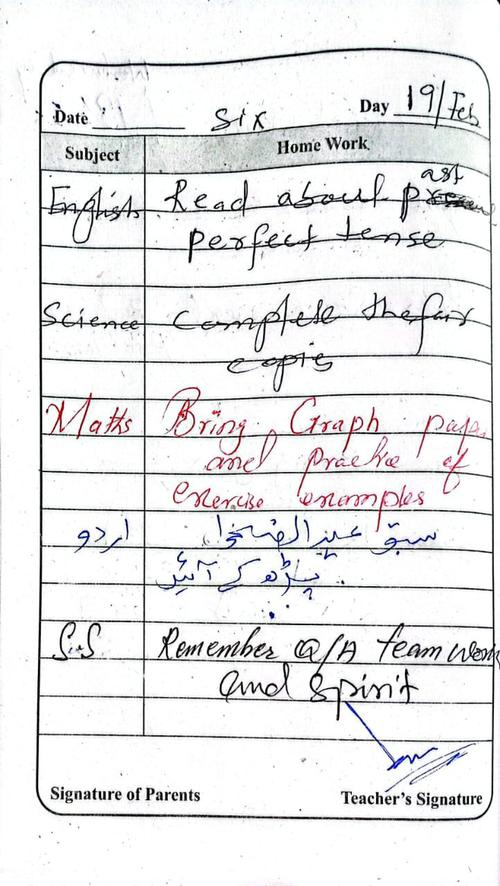 Date Six Day 19/Feb
Subject Home Work
English Read about past
perfect tense
Science Complete the fair
copies
Maths Bring Graph paper
and practice of
exercise examples
اردو سبق عیدالضحیٰ
پڑھ کے آئیں
S.S Remember Q/A team work
and spirit
Signature of Parents Teacher's Signature